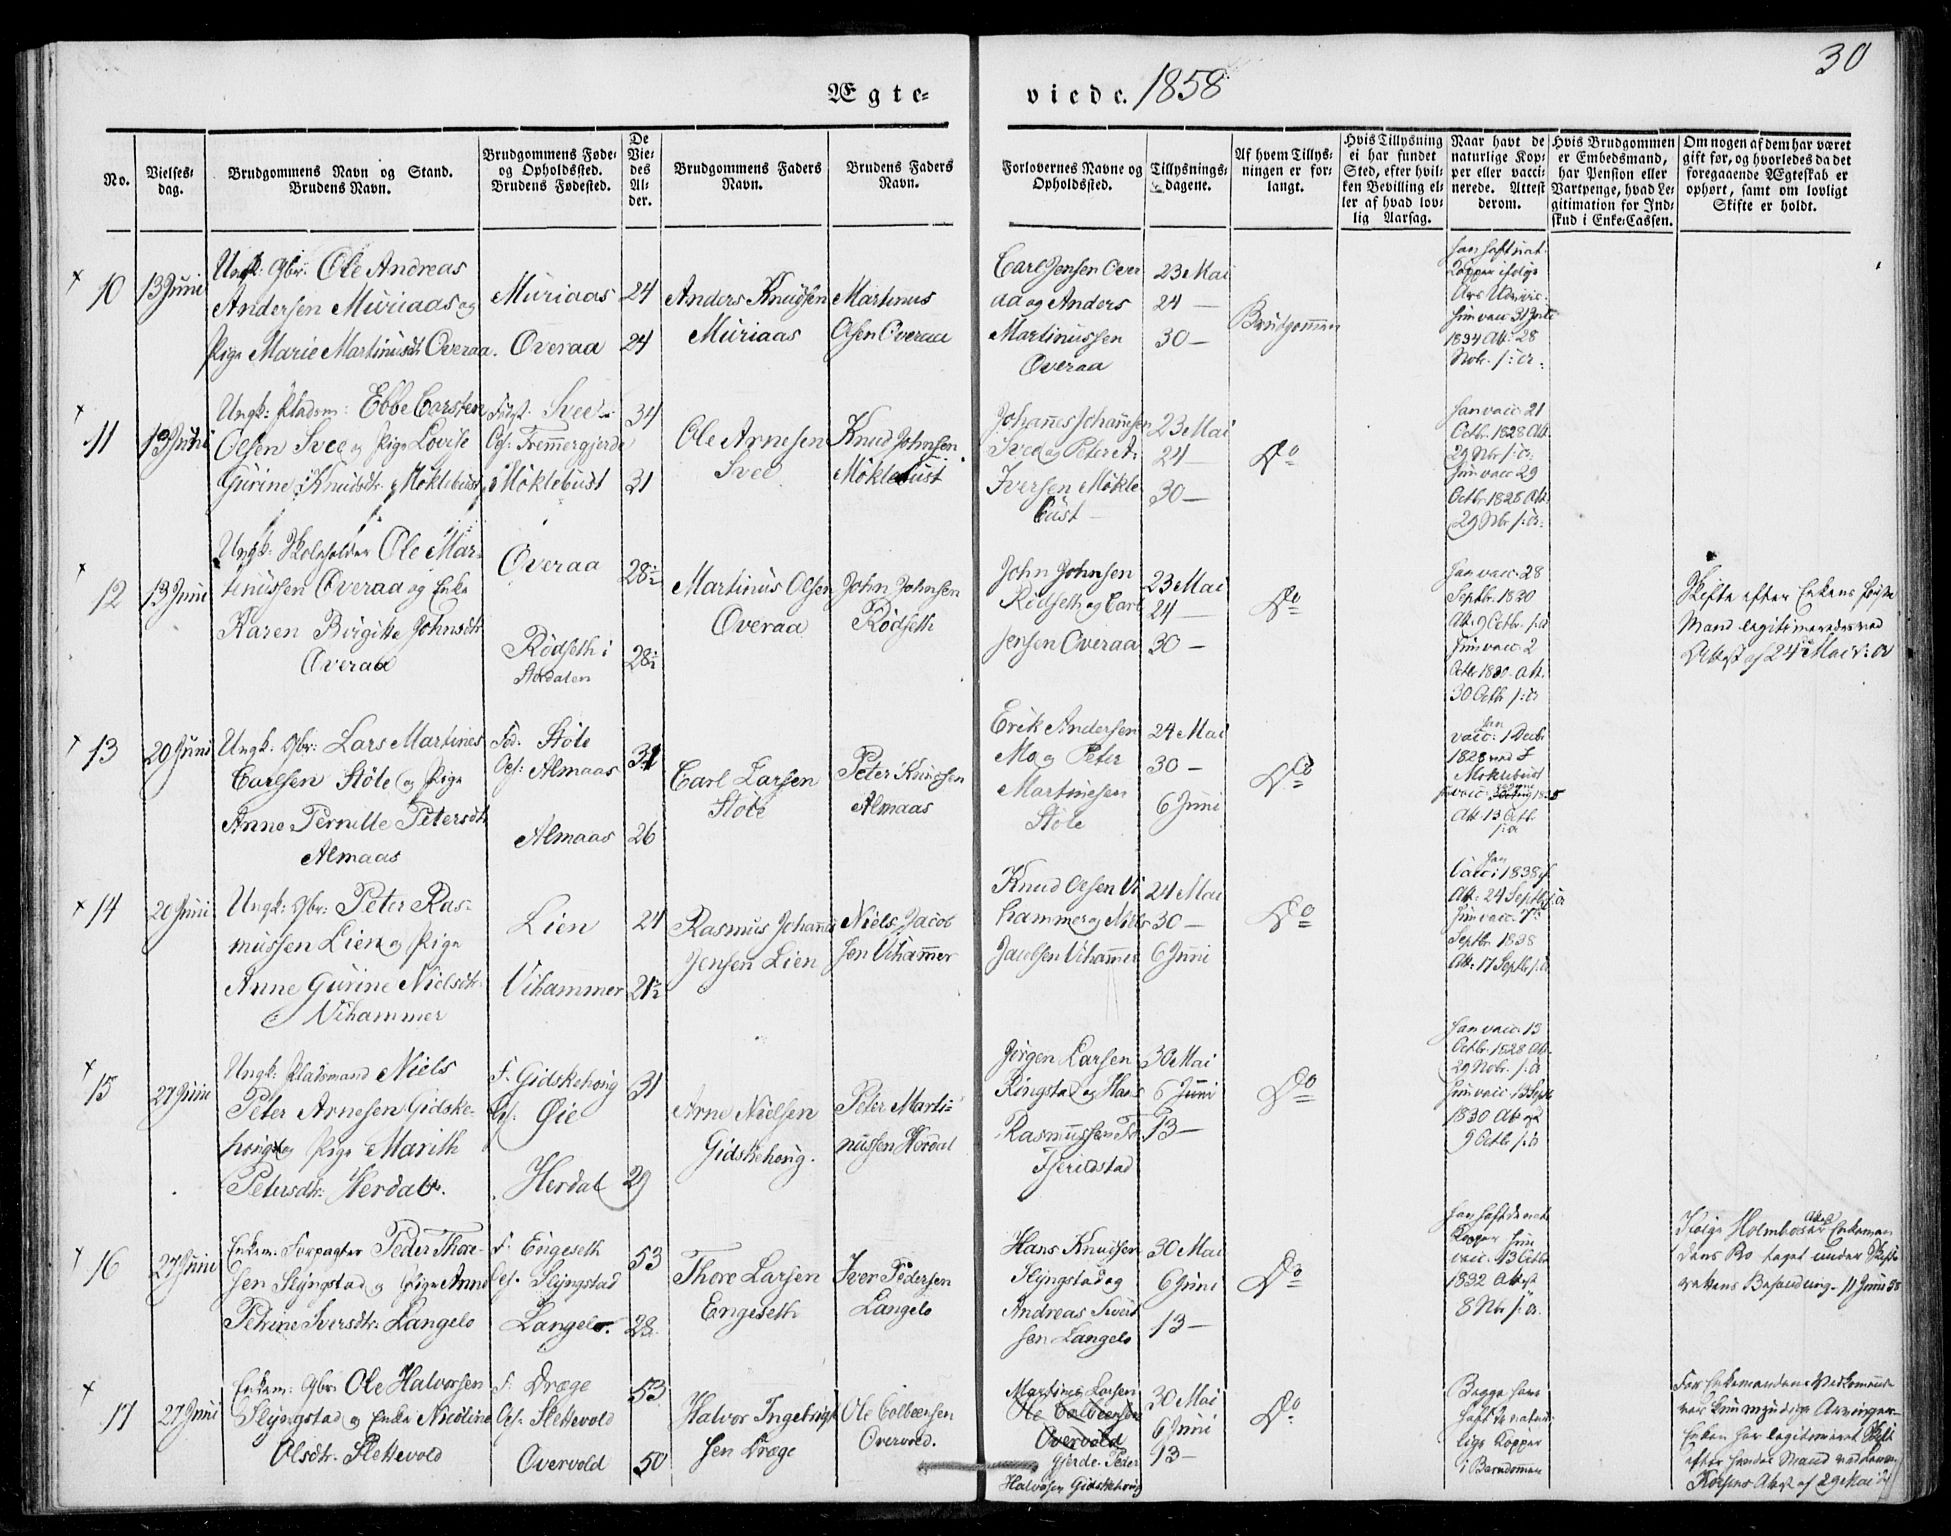 30
Ægte-
viede. 1858
No.
Vielses-
dag.
Brudgommens Navn og Stand.
Brudens Navn.
Brudgommens Føde-
og Opholdssted.
Brudens Fødested.
De
Vie-
des
Al-
der.
Brudgommens Faders
Navn.
Brudens Faders
Navn.
Forlovernes Navne og
Opholdssted.
Tillysnings-
dagene.
Af hvem Tillys-
ningen er for-
langt.
Hvis Tillysning
ei har fundet
Sted, efter hvil-
ken Bevilling el-
ler af hvad lov-
lig Aarsag.
Naar havt de
naturlige Kop-
per eller vacci-
nerede. Attest
derom.
Hvis Brudgommen
er Embedsmand,
har Pension eller
Vartpenge, hvad Le-
gitimation for Ind-
skud i Enke-Cassen.
Om nogen af dem har været
gift før, og hvorledes da det
foregaaende Ægteskab er
ophørt, samt om lovligt
Skifte er holdt.
10
13 Juni
Ungk: Gbr. Ole Andreas
Andersen Muriaas og
Pige Marie Martinusdt Overaa.
Muriaas
Overaa
24
24
Anders Knudsen
Muriaas
Martinus
Olsen Overaa
Carl Jensen Over
aa og Anders
Martinussen
Overaa
23 Mai
24 —
30 —
Brudgommen
han haft nat.
Kopper ifølge
hun vacc 31
1834 Att: 28
Nobr. s: a.
11
13 Juni
Ungk: Pladsm: Ebbe Carsten
Olsen Svee og Pige Lovise
Gurine Knudsdt. Møklebust
Svee
Op: Fremmergjerde
Møklebust
34
31
Ole Arnesen
Svee
Knud Johnsen
Møklebust
Johannes Johannesen
Svee og Peter A.
Iversen Møkle
bust
23 Mai
24 —
30 —
Do
han vacc 21
Octbr. 1828 Att.
29 Nbr. s: a.
hun vacc 29
Octbr. 1828 Att.
29 Nbr. s: a.
12
13 Juni
Ungk: Skoleholder Ole Mar-
tinussen Overaa og Enke
Karen Birgitte Johnsdt
Overaa
Overaa
Rødseth i
Stordalen
28½
28½
Martinus Olsen
Overaa
John Johnsen
Rødseth
John Johnsen
Rødseth og Carl
Jensen Overaa
23 Mai
24 —
30 —
Do
han vacc 28
Septbr. 1830
Att. 9 Octbr. s: a
hun vacc 2
Octbr 1830 Att.
30 Octb s: a
Skifte efter Enkens første
Mand legitimeredes ved
Attest af 24de Mai d: a
13
20 Juni
Ungk: Gbr: Lars Martines
Carlsen Støle og Pige
Anne Pernille Petersdt
Almaas
Fød. Støle
Op: Almaas
Almaas
31
26
Carl Larsen
Støle
Peter Knudsen
Almaas
Erik Andersen
Mo og Peter
Martinesen
Støle
24 Mai
30 —
6 Juni
Do
han
vacc: 1 Decbr
1828 ved
Møklebust
Att. 13 Octb.
s: a
14
20 Juni
Ungk: Gbr: Peter Ras-
mussen Lien og Pige
Anne Gurine Nielsdt
Vihammer
Lien
Vihammer
24
21½
Rasmus Johannes
Jensen Lien
Niels Jacob
sen Vihammer
Knud Olsen Vi
hammer og Niels
Jacobsen Vihammer
24 Mai
30 —
6 Juni
Do
han
vacc: 1838
Att: 24 Septbr s: a
hun vacc: 7de
Septbr 1838
Att: 17 Septbr s: a
15
27 Juni
Ungk: Pladsmand Niels
Peter Arnesen Gidske-
houg og Pige Marith
Petersdt. Herdal.
F. Gidskehoug
Op. Øie
Herdal
31
29
Arne Nielsen
Gidskehoug.
Peter Marti-
nussen Herdal
Jørgen Larsen
Ringstad og Hans
Rasmussen
30 Mai
6 Juni
13 —
Do
han vacc: 15
Octbr. 1828 Att.
29 Nobr. s: a
hun vacc 13 Sept
1830 Attest
9 Octb s: a
16
27 Juni
Enkem: Forpagter Peder Thore-
sen Slyngstad og Pige Anne
Petrine Iversdt. Langelo
F. Engeseth
Op. Slyngstad
Langelo.
53
28
Thore Larsen
Engeseth
Iver Pedersen
Langelo
Hans Knudsen
Slyngstad og
Andreas Ivers
sen Langelo
30 Mai
6 Juni
13 —
Do
han haft de nat.
Kopper hun
vacc: 13 Octbr
1832 Attest
8 Nbr s: a.
Ifølge Holmboes Attest er Enkeman
dens Bo taget under Skifte
rettens Behandling. 11 Juni 58
17
27 Juni
Enkem: Gbr: Ole Halvorsen
Slyngstad og Enke Nicoline
Olsdt. Slettevold
F. Drage
Op. Slettevold
Overvold
53
50
Halvor Ingebrigt
sen Drage
Ole Colbeensen
Overvold.
Martinus Larsen
Ole Colbeensen
Overvold
Gjerde. Peder
Halvorsen Gidskehoug
30 Mai
6 Juni
13 —
Do
Begge have
haft de natur-
lige Kopper
i Barndommen
For Enkemandens Vedkommende
var kun myndige Arvinger.
Enken har legitimeret Skifte
efter hendes Mand ved
Attest af 29 Mai